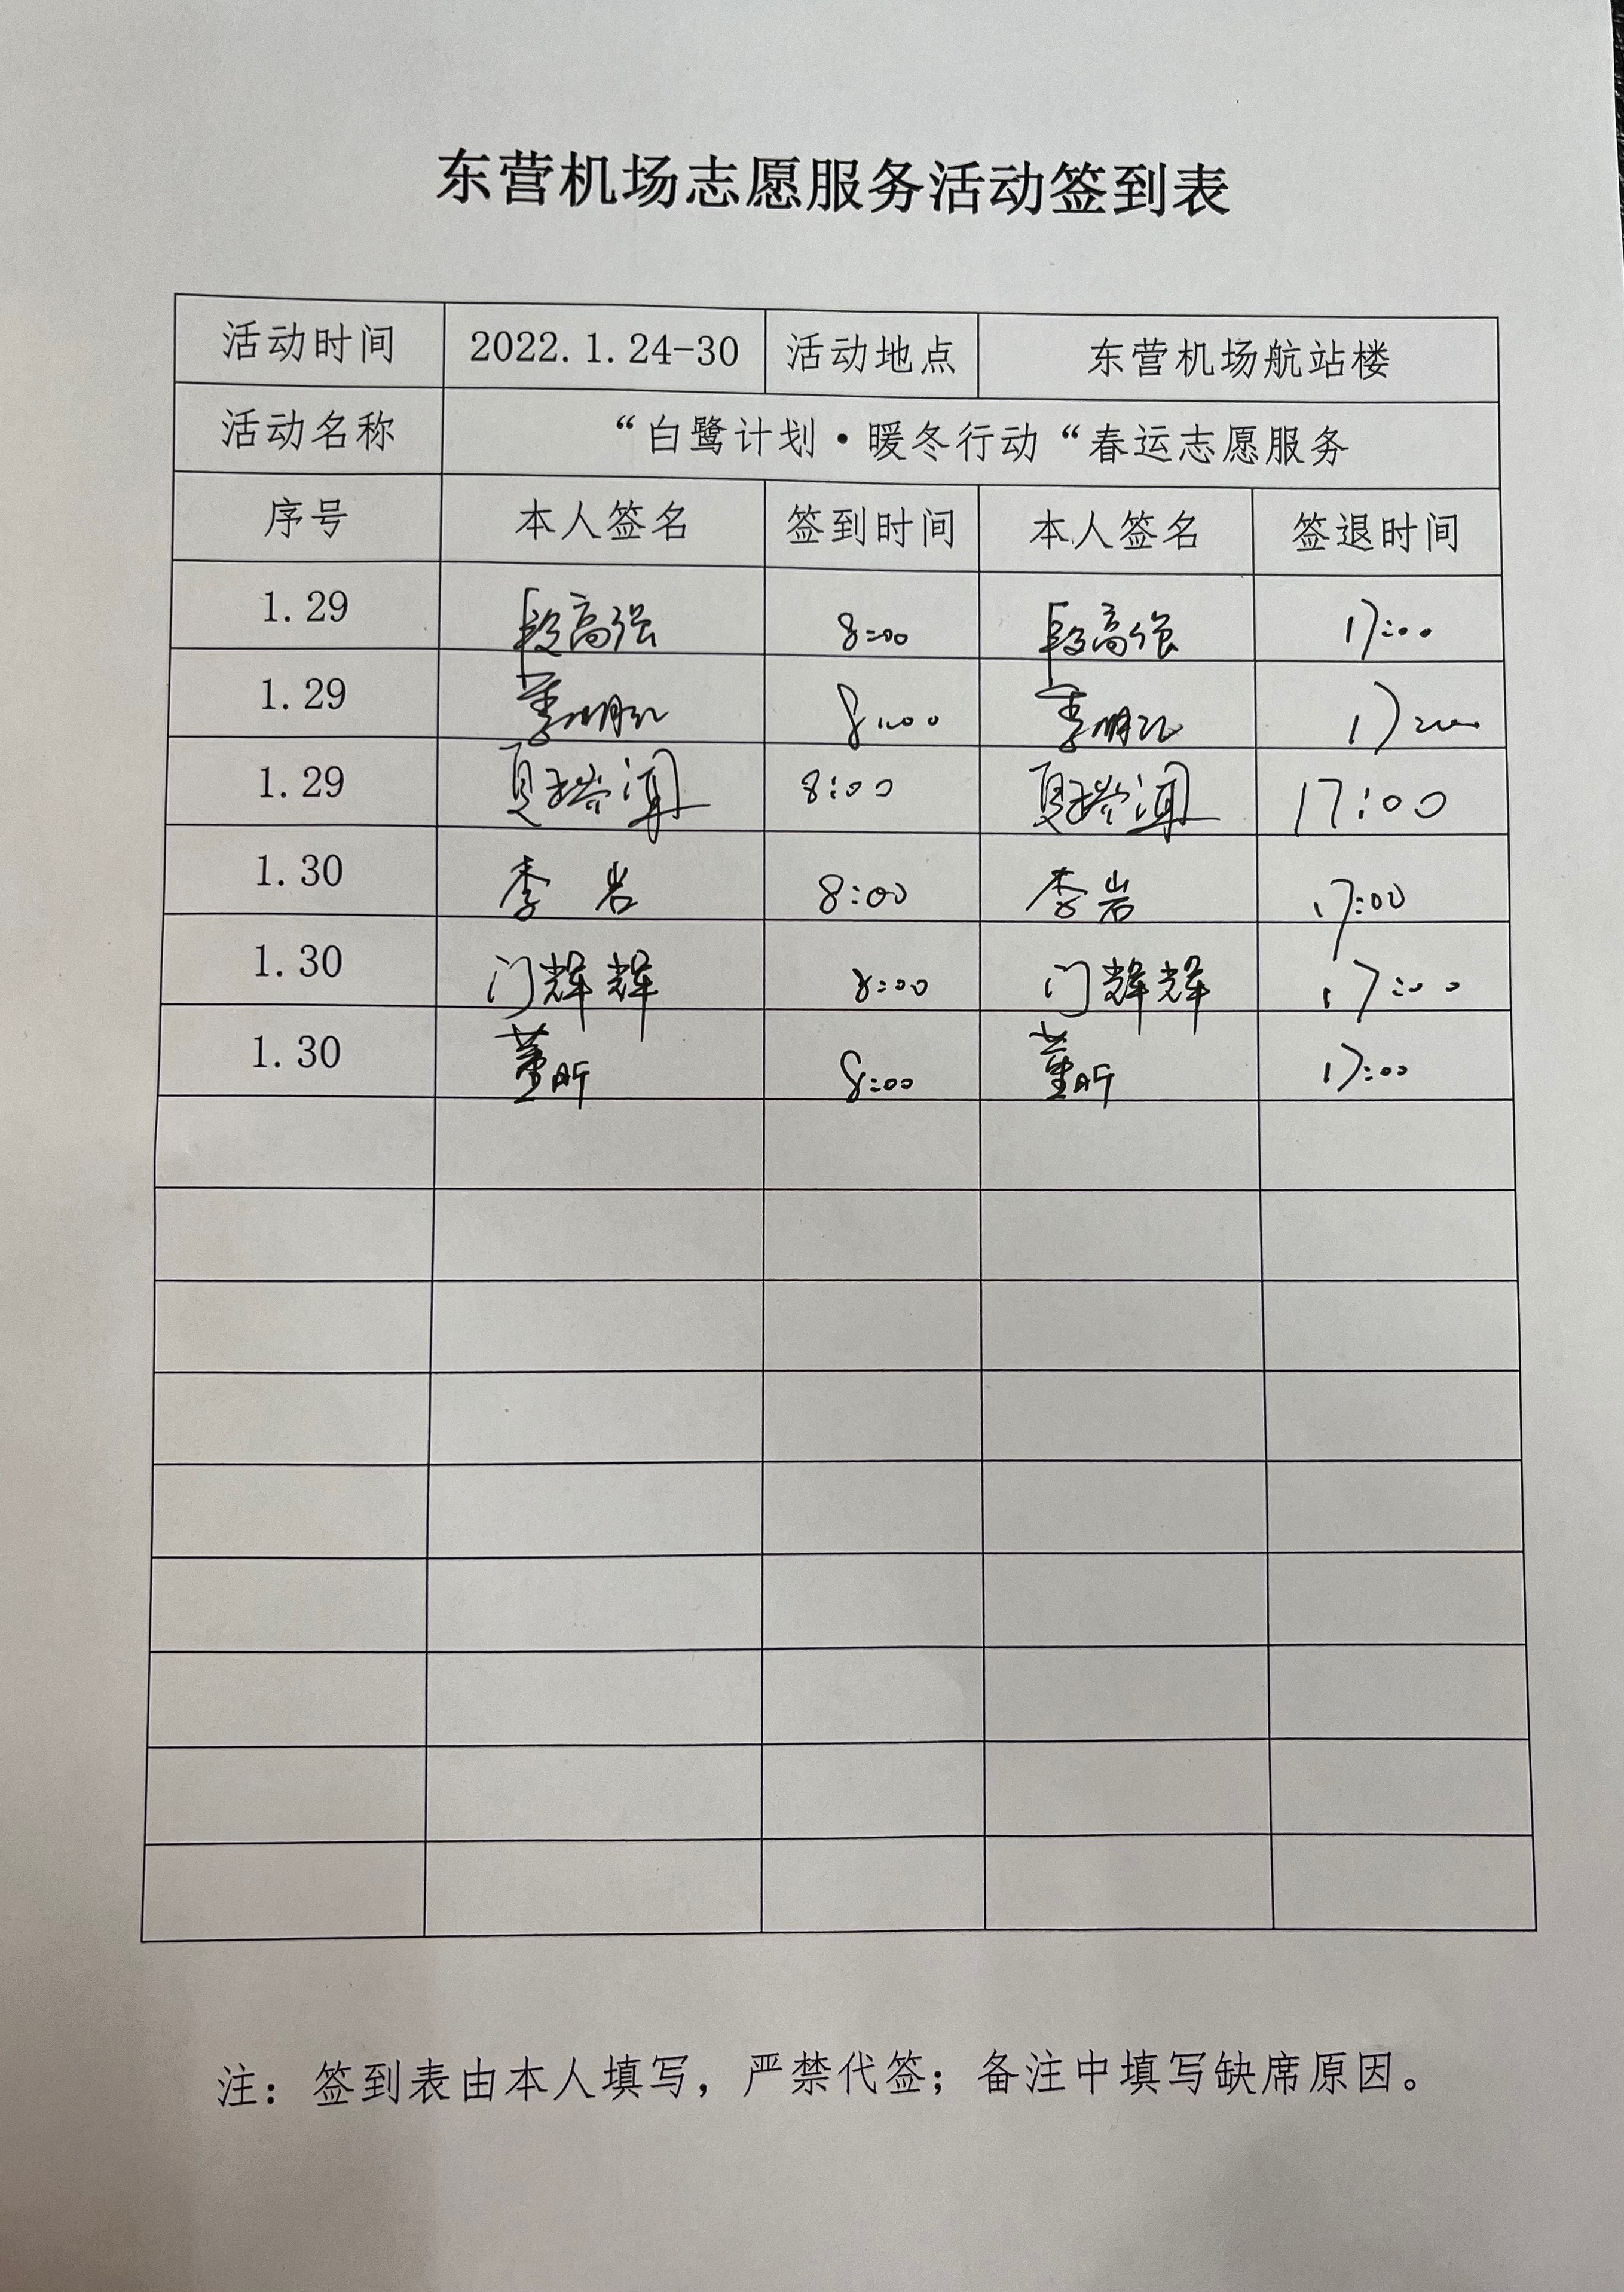 东营机场志愿服务活动签到表
活动时间 2022.1.24-30 活动地点 东营机场航站楼
活动名称 “白鹭计划·暖冬行动“春运志愿服务
序号 本人签名 签到时间 本人签名 签退时间
1.29 段高强 8:00 段高强 17:00
1.29 8:00 17:00
1.29 8:00 17:00
1.30 李岩 8:00 李岩 17:00
1.30 门辉辉 8:00 门辉辉 17:00
1.30 董昕 8:00 董昕 17:00
注：签到表由本人填写，严禁代签；备注中填写缺席原因。